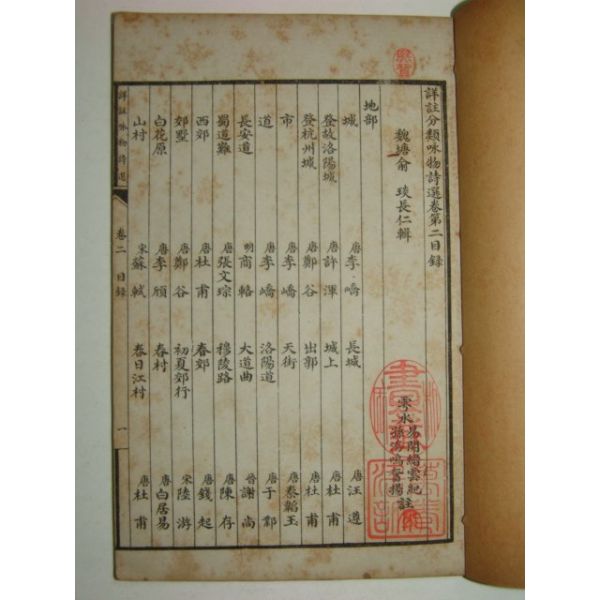 詳註分類咏物詩選卷第二目錄
魏塘俞 琰長仁輯
雩水易開縉雲紀
孫洊鳴奮揚註
地部
城 唐李嶠 長城 唐汪遵
登故洛陽城 唐許渾 城上 唐杜甫
登杭州城 唐鄭谷 出郭 唐杜甫
市 唐李嶠 天街 唐秦韜玉
道 唐李嶠 洛陽道 唐于鄴
長安道 明商輅 大道曲 晉謝尚
蜀道難 唐張文琮 穆陵路 唐陳存
西郊 唐杜甫 春郊 唐錢起
郊墅 唐鄭谷 初夏郊行 宋陸游
白花原 唐李頎 春村 唐白居易
山村 宋蘇軾 春日江村 唐杜甫
詳註咏物詩選 卷二 目錄 一